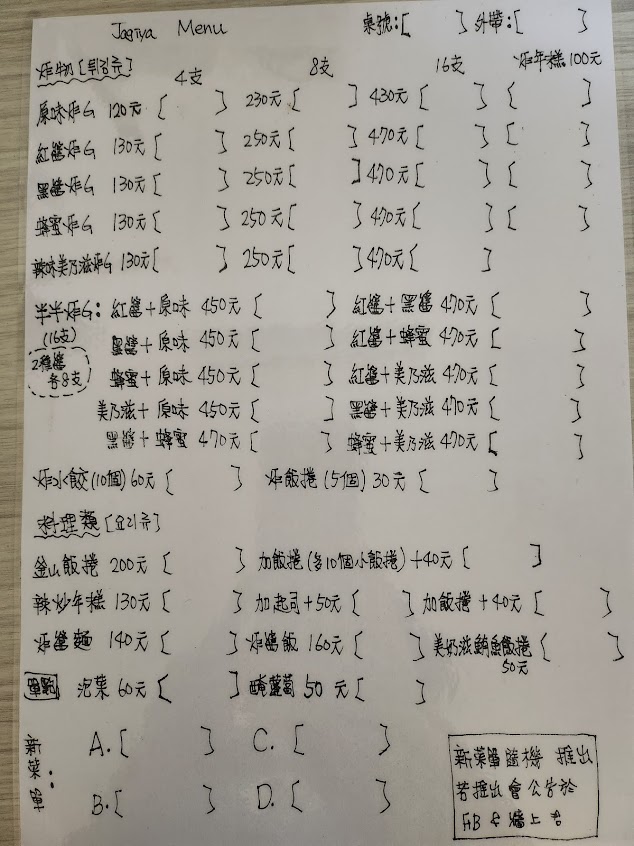 Jagiya Menu 桌號:[ ] 外帶:[ ]
炸物 [튀김류] 4支 8支 16支 炸年糕 100元
原味炸G 120元 [ ] 230元 [ ] 430元 [ ] [ ]
紅醬炸G 130元 [ ] 250元 [ ] 470元 [ ] [ ]
黑醬炸G 130元 [ ] 250元 [ ] 470元 [ ] [ ]
蜂蜜炸G 130元 [ ] 250元 [ ] 470元 [ ] [ ]
辣味美乃滋炸G 130元 [ ] 250元 [ ] 470元 [ ]
半半炸G: 紅醬+原味 450元 [ ] 紅醬+黑醬 470元 [ ]
(16支) 黑醬+原味 450元 [ ] 紅醬+蜂蜜 470元 [ ]
2種醬
各8支
蜂蜜+原味 450元 [ ] 紅醬+美乃滋 470元 [ ]
美乃滋+原味 450元 [ ] 黑醬+美乃滋 470元 [ ]
黑醬+蜂蜜 470元 [ ] 蜂蜜+美乃滋 470元 [ ]
炸水餃(10個) 60元 [ ] 炸飯捲(5個) 30元 [ ]
料理類 [요리류]
金山飯捲 200元 [ ] 加飯捲(多10個小飯捲)+40元 [ ]
辣炒年糕 130元 [ ] 加起司+50元 [ ] 加飯捲+40元 [ ]
炸醬麵 140元 [ ] 炸醬飯 160元 [ ] 美奶滋鮪魚飯捲 [ ]
50元
單點 泡菜 60元 [ ] 醃蘿蔔 50元 [ ]
新菜單: A.[ ] C.[ ]
B.[ ] D.[ ]
新菜單隨機 推出
若推出會公告於
FB & 牆上